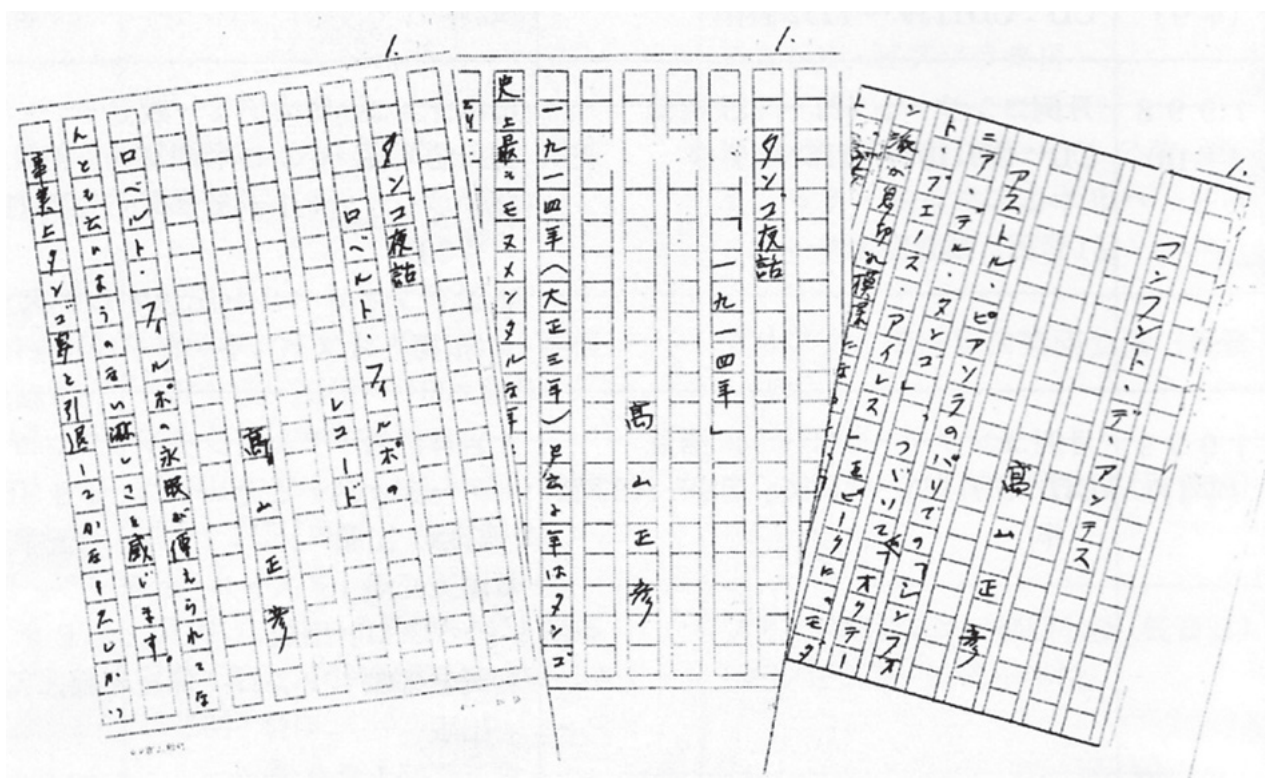 1.
コンフント・デ・アンデス
高山正彦
アストル・ピアソラのパリでのコシンフオ
ニア・デル・タンゴ」つづいて オクテー
ト・ブエノス・アイレス
1.
タンゴ夜話
「一九一四年」
高山正彦
一九一四年(大正三年)と云ふ年はタンゴ
史上最もモヌメンタルな年
1.
タンゴ夜話
ロベルト・フィルポの
レコード
高山正彦
ロベルト・フィルポの永眠が傳えられてな
んとも云いようのない淋しさを感じます。
事実上タンゴ界を引退